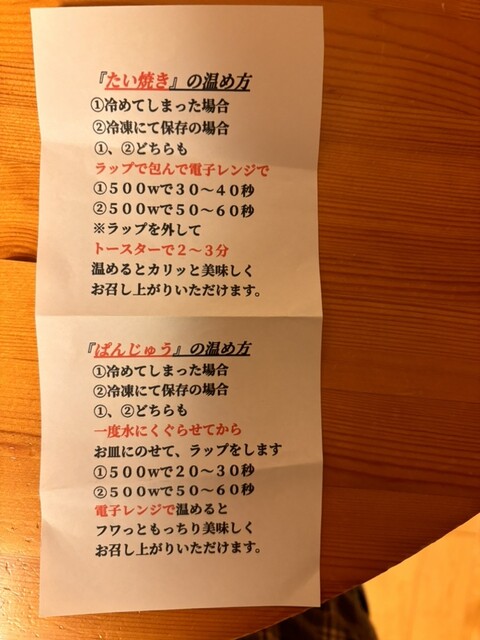 『たい焼き』の温め方
①冷めてしまった場合
②冷凍にて保存の場合
①、②どちらも
ラップで包んで電子レンジで
①５００wで３０～４０秒
②５００wで５０～６０秒
※ラップを外して
トースターで２～３分
温めるとカリッと美味しく
お召し上がりいただけます。
『ぱんじゅう』の温め方
①冷めてしまった場合
②冷凍にて保存の場合
①、②どちらも
一度水にくぐらせてから
お皿にのせて、ラップをします
①５００wで２０～３０秒
②５００wで５０～６０秒
電子レンジで温めると
フワっともっちり美味しく
お召し上がりいただけます。